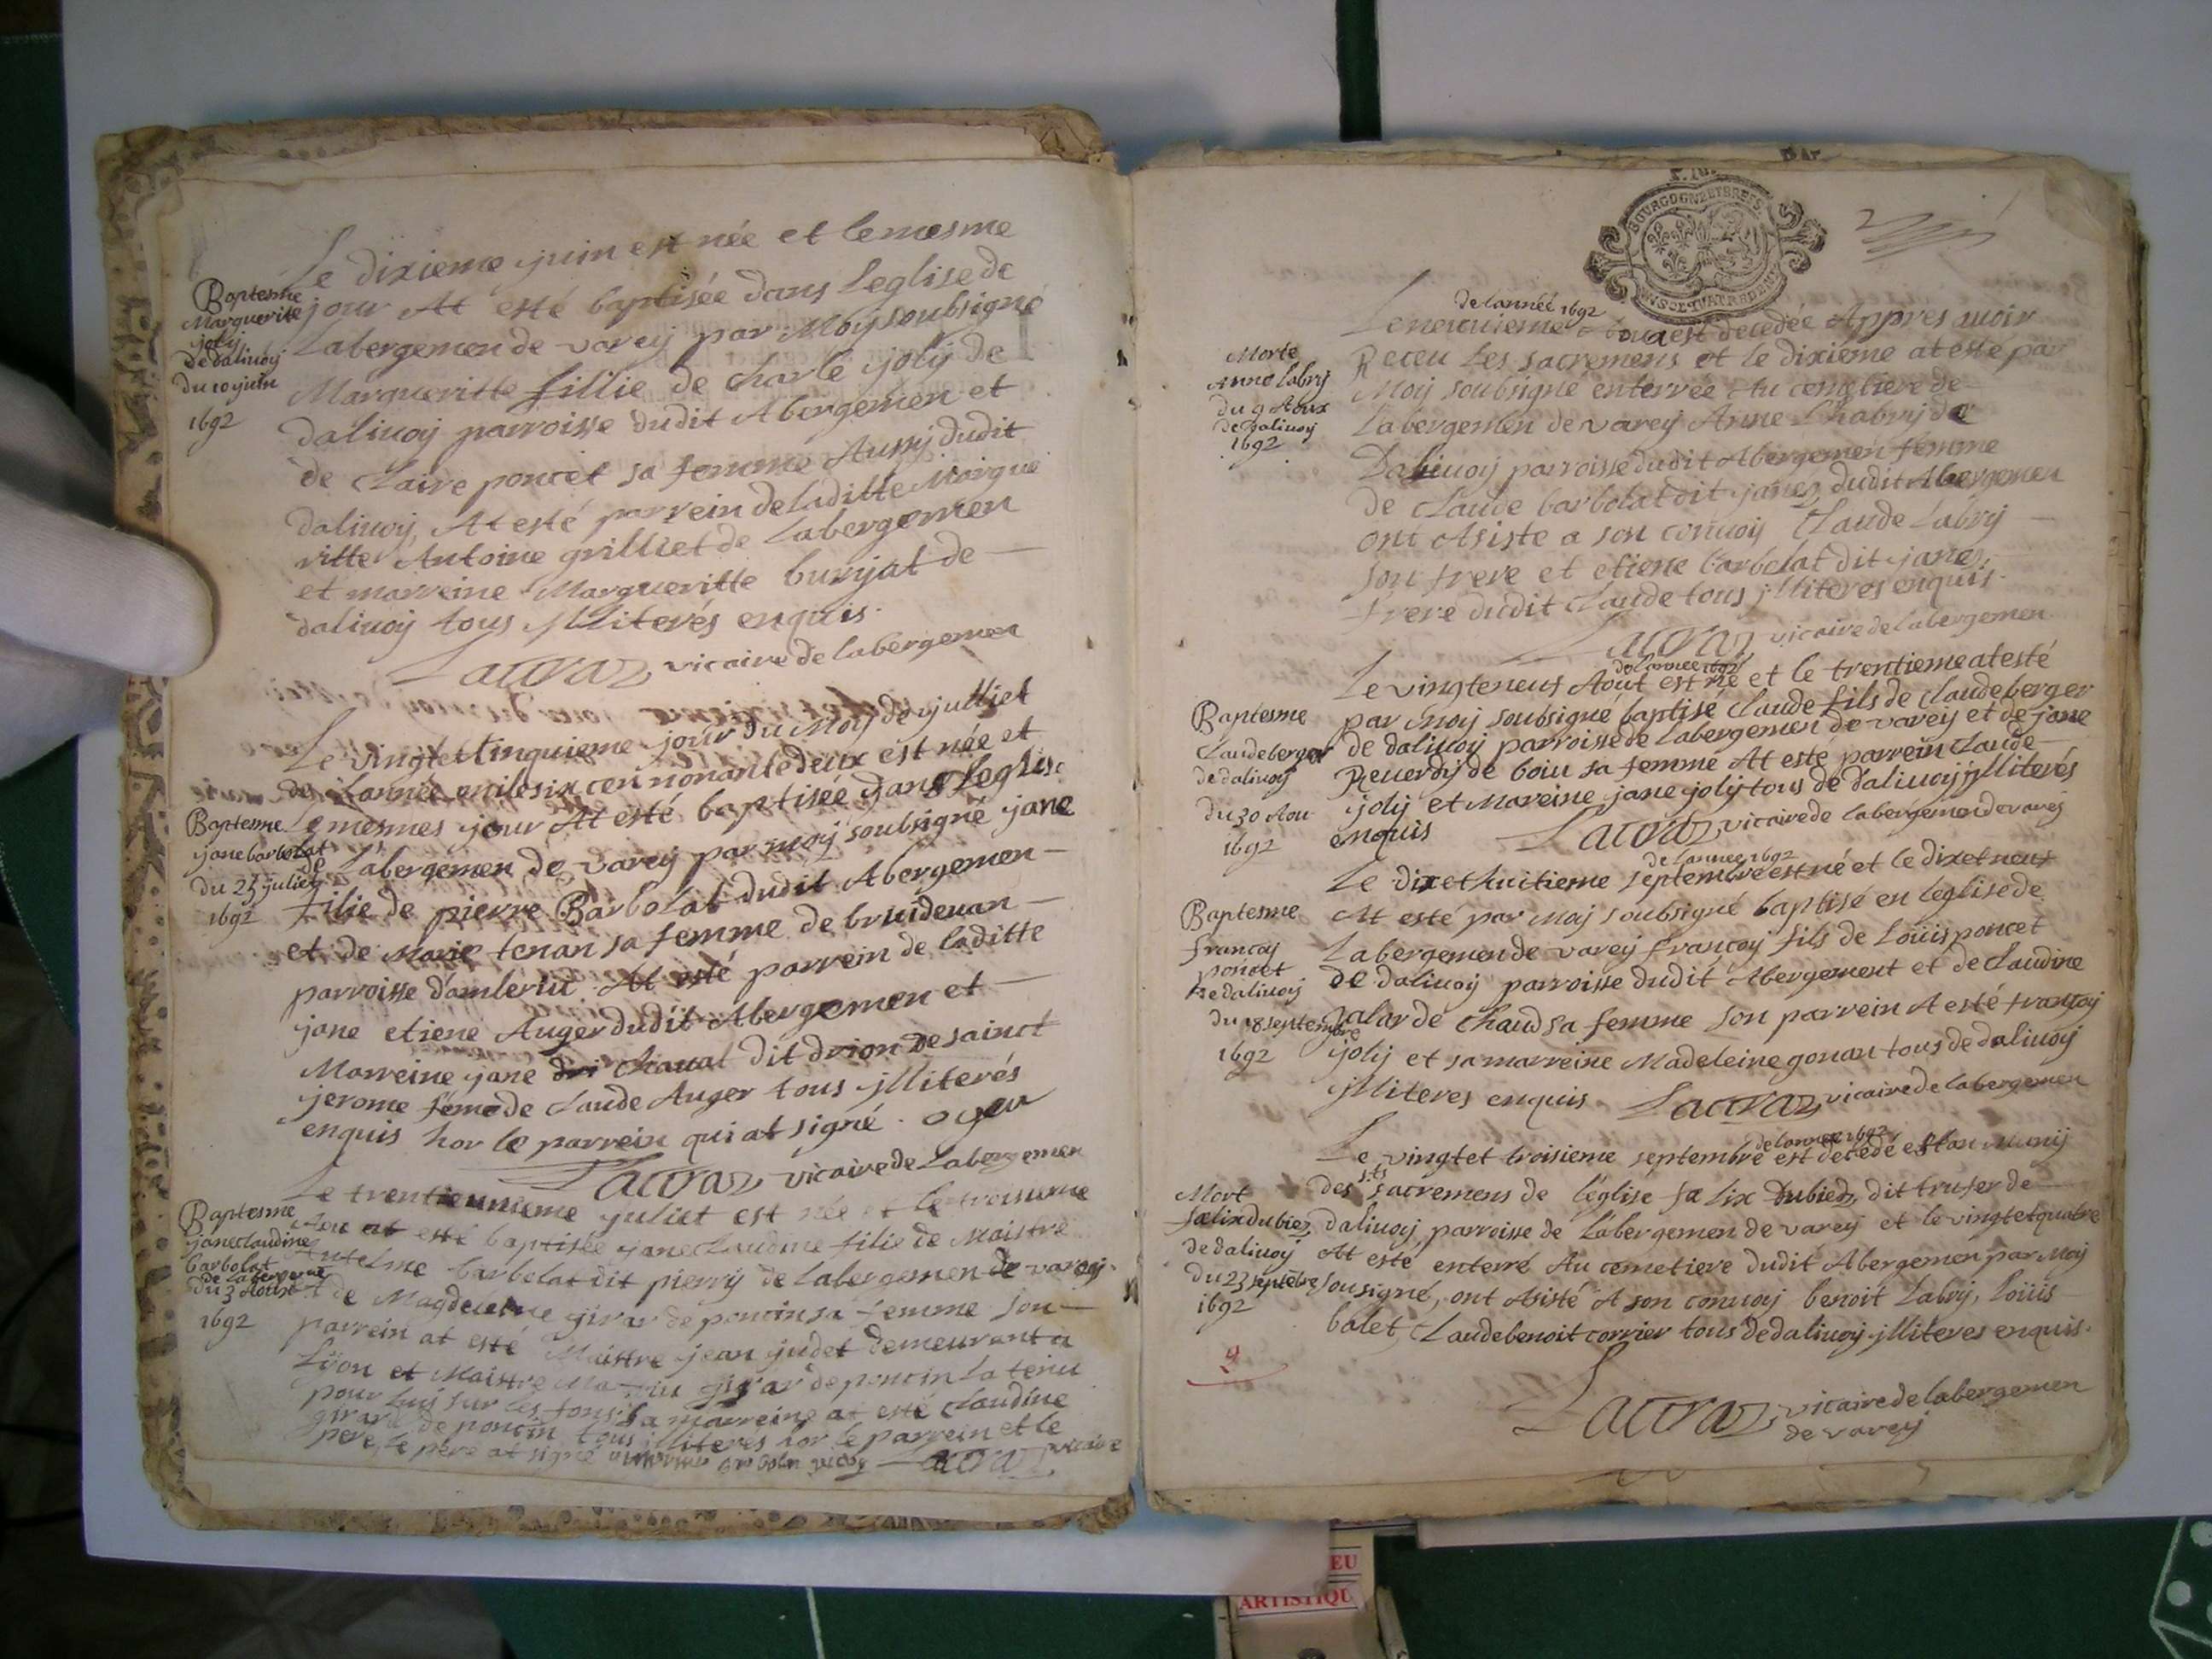 Le dixieme juin est née et le mesme
Baptesme
Marguerite
joly
de dalivoy
du 10 juin
1692
jour At esté baptisée dans Leglise de
Labergemen de varey par Moy soubsigné
Margueritte fillie de charle joly de
dalivoy parroisse dudit Abergemen et
de Claire poncet sa femme Aussy dudit
dalivoy, At esté parrein de laditte Margue
ritte Antoine grilliet de Labergemen
et marreine Margueritte burjat de
dalivoy tous jlliterés enquis.
Lacraz vicaire de labergemen
Le vingtetcinquieme jour du Moy de julliet
de lannée mile six cen nonante deux est née et
Baptesme
jane barbolat
de
du 25 juliet
1692
Le mesmes jour At esté baptisée dans Leglise
de Labergemen de varey par moy soubsigné jane
filie de pierre Barbolat dudit Abergemen
et de Marie tenan sa femme de bruidevan
parroisse damleriu At esté parrein de laditte
jane etiene Auger dudit Abergemen et
Marreine jane chavat dit drion de sainct
jerome féme de Claude Auger tous jlliterés
enquis hor le parrein qui at signé . ogeu
Lacraz vicaire de Labergemen
Le trentieunieme juliet est née et le troisieme
Baptesme
jane claudine
barbolat
de labergeme
du 3 Aoust
1692
Aou at esté baptisée jane claudine filie de Maistre
Antelme barbelat dit pierry de labergemen de varey
et de Magdeleine girar de poncin sa femme son
parrein at esté Maistre jean judet demeurant a
Lÿon et Maistre girar de poncin la tenu
pour luis sur les fons. Sa marreine at esté claudine
girar de poncin tous jlliteres hor le parrein et le
pere, le père at signé Lacraz vicaire
BOURGOGNE ET BRESS
de lannée 1692
Le neuvieme Aou est decedée Appres avoir
Morte
Anne labry
du 9 Aoux
de dalivoy
1692
Receu Les sacremens et le dixieme at esté par
Moy soubsigné enterrée Au cemetiere de
Labergemen de varey Anne Chabry de
Dalivoy parroisse dudit Abergemen femme
de Claude barbolat dit janez dudit Abergemen
ont Asiste a son convoy Claude Labry
son frere et etiene barbelat dit janez
frere dudit Claude tous jlliteres enquis.
Lacraz vicaire de labergemen
de lannee 1692
Le vingteneuf Aout est né et le trentieme at esté
Baptesme
Claude berger
de dalivoy
du 30 Aou
1692
par moy soubsigné baptisé Claude fils de Claude berger
de dalivoy parroisse de Labergemen de varey et de jane
Reverdy de boiu sa femme At este parrein Claude
joly et Mareine jane joly tous de dalivoy jlliterés
enquis Lacraz vicaire de labergemen de varey
de lannee 1692
Le dixethuitieme septembre est né et le dixetneuf
Baptesme
francoy
poncet
de dalivoy
du 18 septembre
1692
At esté par Moy soubsigné baptisé en leglise de
Labergemen de varey francoy fils de Loüis poncet
de dalivoy parroisse dudit Abergement et de Claudine
jalar de chaud sa femme son parrein At esté francoy
joly et sa marreine Madeleine gonan tous de dalivoy
jlliteres enquis Lacraz vicaire de labergemen
de lannee 1692
Le vingtet troisieme septembre est decedé estan Muny
Mort
Fælix dubiez
de dalivoy
du 23 septebre
1692
des sts sacremens de léglise fælix Dubiez dit truser de
dalivoy parroisse de Labergemen de varey et le vingtetquatre
At esté enterré Au cemetiere dudit Abergemen par Moy
sousigné, ont Asisté A son convoy benoit Labry, Loüis
bolet, Claude benoit corrier tous de dalivoy jlliteres enquis.
Lacraz vicaire de labergemen
de varey
EU
ARTISTIQU